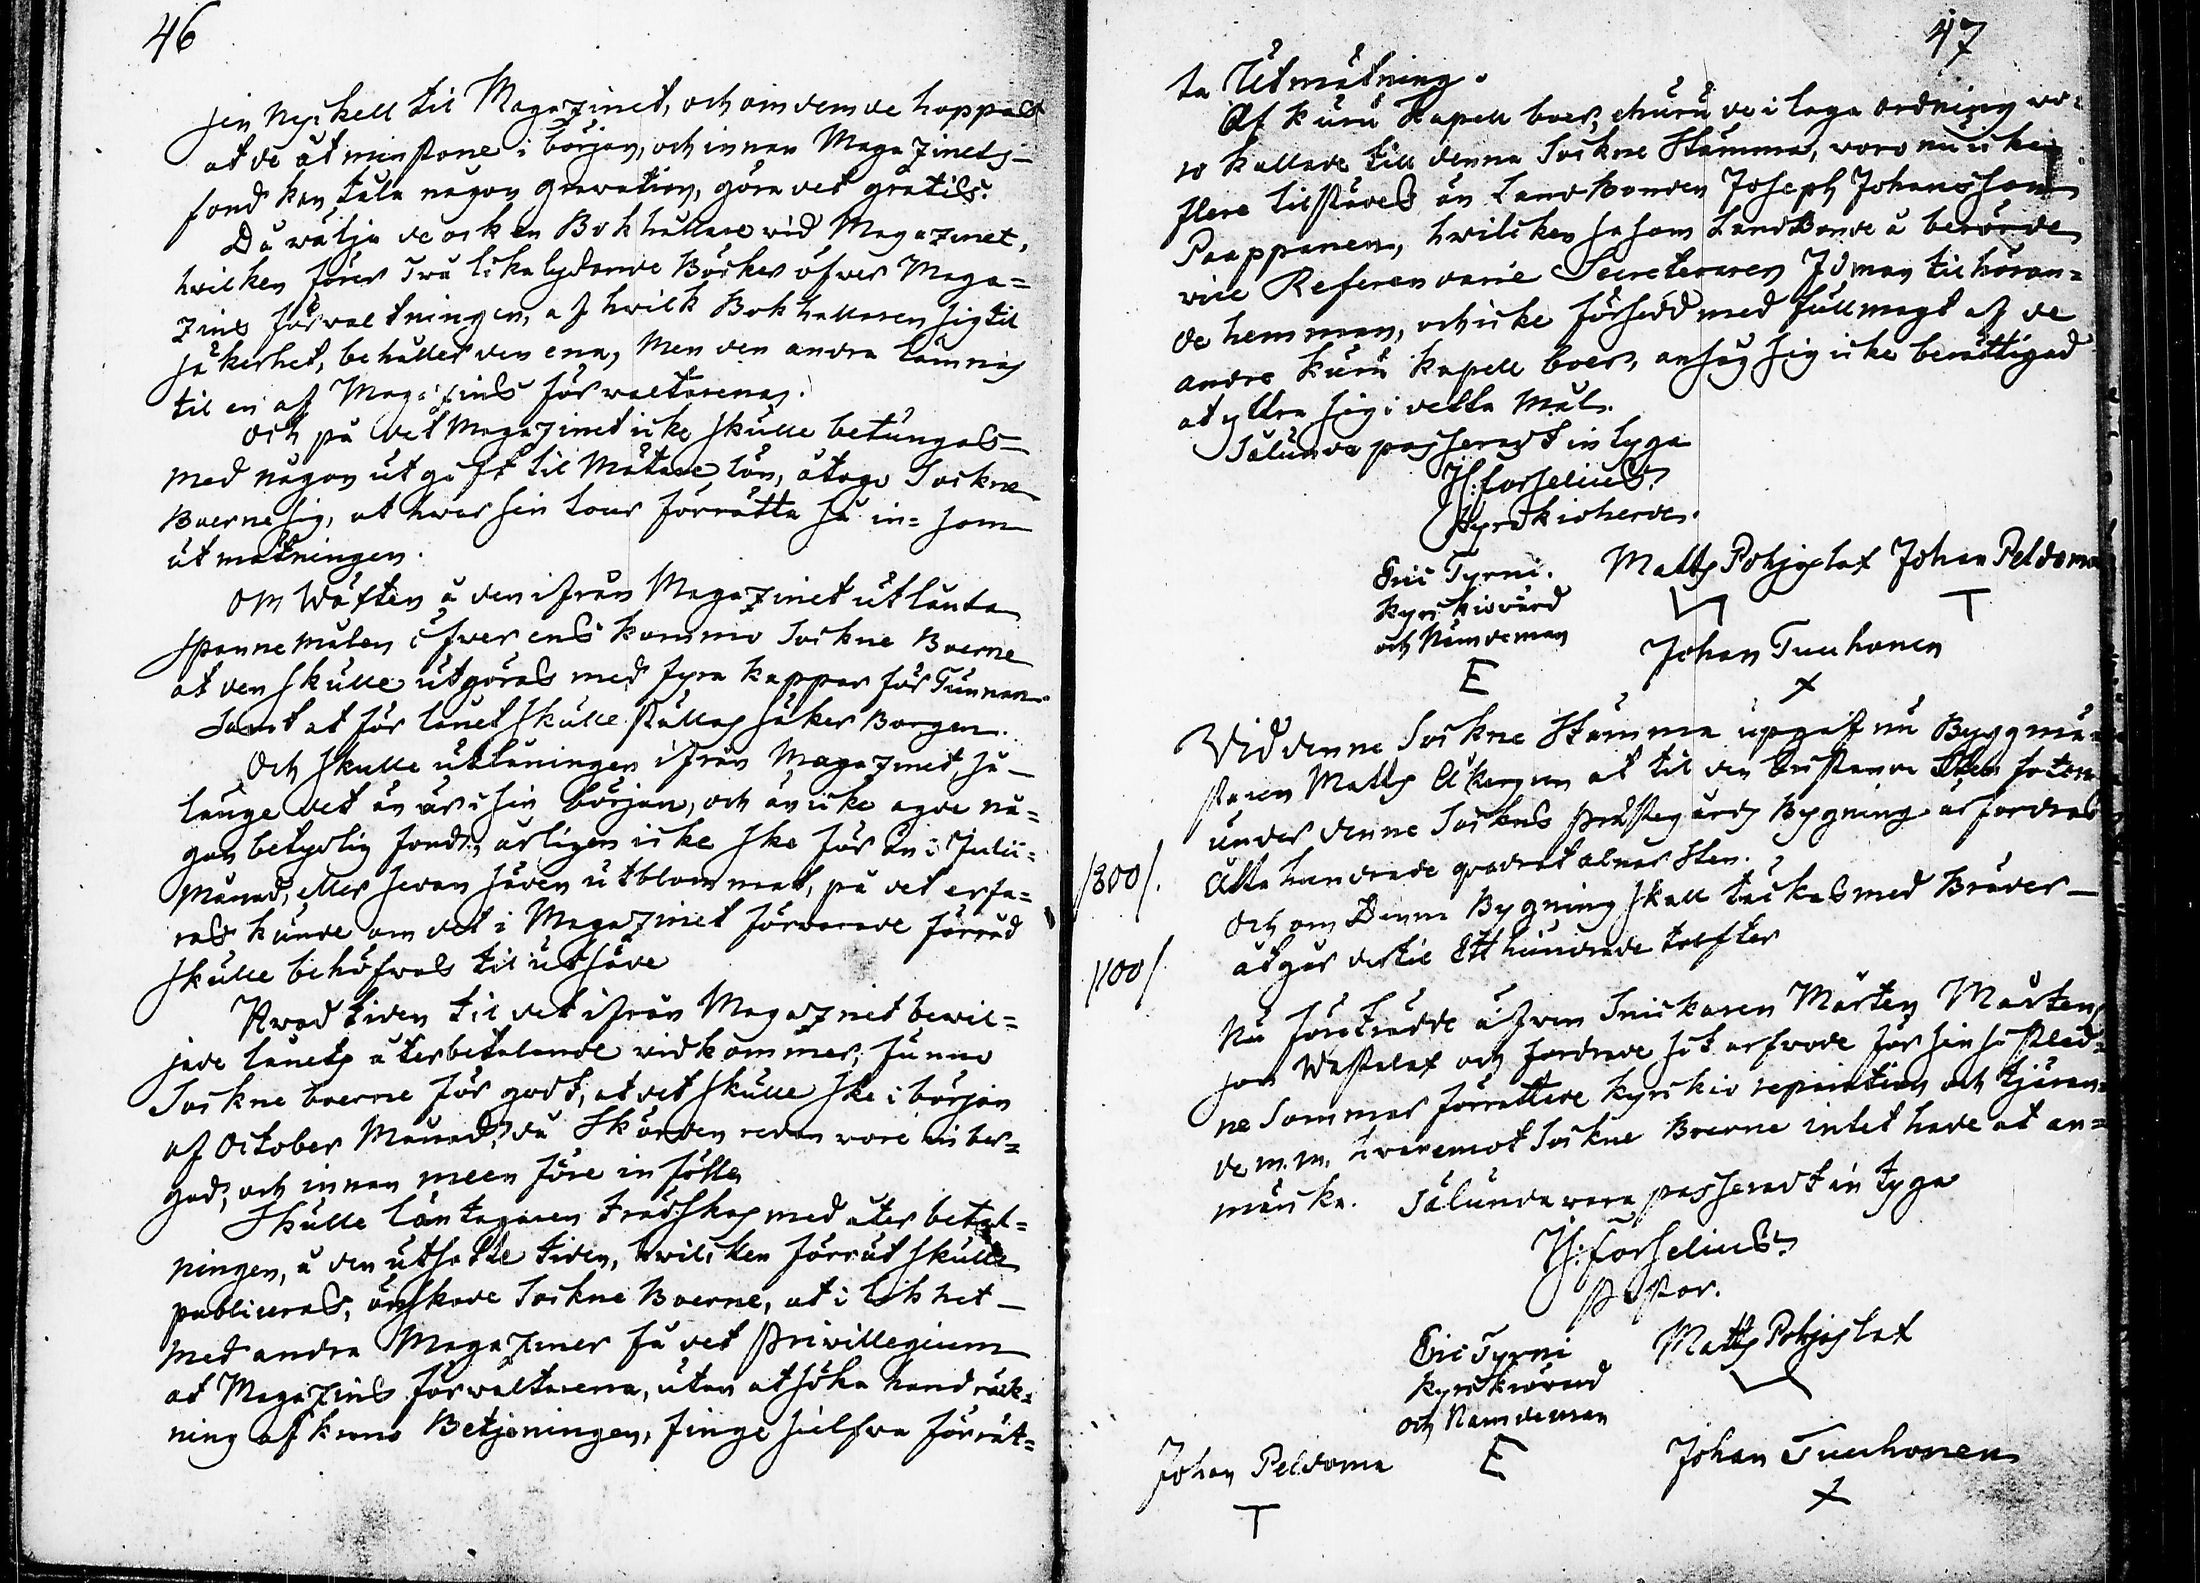 46
sin Nyckell til Magazinet, och om dem de hoppas
at de åt minstone i början, och innan Magazinets
fond kan tåla någon gravation, göra det gratis.
Då wälja de ock en Bokhållare wid Magazinet,
hwilken förer Twå lika lydande Böcker öfwer Maga=
zins förwaltningen, af hwilk Bokhållaren sig til
säkerhet, behåller den ena, Men den andra lämnas
til en af Magazins förwaltarena.
Och på det Magazinet icke skulle betungas
med någon utgift til Mätare lön, åtogo Sockne
Boerne sig, at hwar sin tour förrätta så in= som
utmätningen.
Om Wäxten å den ifrån Magazinet utlånta
spannemålen öfwerens kommo Sockne Boerne
at den skulle utgöras med fyra kappar för Tunnan.
Samt at för lånet skulle ställas säker Borgen.
Och skulle utlåningen ifrån Magazinet så
länge det än är i sin början, och än icke agde nå=
gon betydlig fond, årligen icke ske för än i Julii
Månad, eller sedan säden utblommat, på det erfa=
ras kunde om det i Magazinet förwarade förråd
skulle behöfwas til utsäde
Hwad tiden til det ifrån Magazinet bewil=
jade lånets återbetalande widkommer, funno
Sockne boerne för godt, at det skulle ske i början
af October Månad, då Skörden redan wore inber=
gad, och innan meen före infölle
Skulle låntagaren tredskas med återbetal=
ningen, å den utsatte tiden, hwilcken förrut skulle
publiceras, önskade Sockne Boerne, at i likhet
med andra Magaziner få det Privillegium
at Magazins förwaltarena, utan at söka handräck=
ning af krono Betjeningen, finge sielfwa förrät=
47
ta Utmätning.
Af Kuru Kapell boer, ehuru de i laga ordning wo=
ro kallade till denna Sockne Stämma, woro nu icke
flere tilstädes än Landbonden Joseph Johansson
Paappanen, hwilcken såsom Landbonde å berörde
vice Referendarie Secreteraren Idman tilhöran=
de hemman, och icke försedd med fullmagt af de
andre Kuru Kapell boer, ansåg sig icke berättigad
at yttra sig i detta Mål.
Sålunda passeradt intyga
H: Forselius
Kyrckioherde.
Eric Tyrni. Matts Pohjoslax Johan Peldoma
Kyrckiovärd
och Nämdeman Johan Tuuhonen
E
T
X
Wid denne Sockne Stämma upgaf nu Byggmä=
staren Matts Åkergren at til den tilstånde Stenfoten
under denne Sockens Prästegårds Bygning erfordras
/800/. Åtta hundrade qvadrat alnar Sten.
Och om Denna Bygning skall täckas med Bräder
/100/ åtgår dertil Ett hundrade tolfter
Nu företrädde äfwen Snickaren Mårten Mårtens
son Wästalax och fordrade sit arfwode för sin sistled=
ne Sommar förrättade kyrckio reparation och tjäran=
de m.m. hwaremot Sockne Boerne intet hade at an=
märcka. Sålunda wara passeradt intyga
H: Forselius
Pastor.
Eric Tyrni Matts Pohjoslax
Kyrckiovärd
och Nämdeman
Johan Peldoma E Johan Tuuhonen
T X